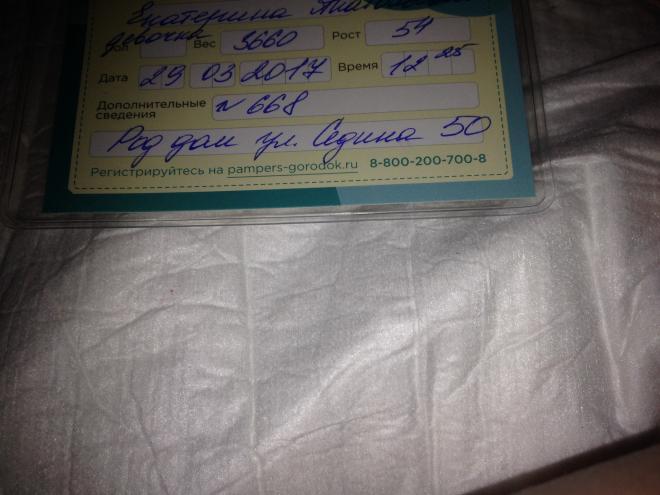 Екатерина
девочка
Пол Вес 3660 Рост 54
Дата 29 03 2017 Время 12 25
Дополнительные сведения N 668
Род дом ул. Седина 50
Регистрируйтесь на pampers-gorodok.ru 8-800-200-700-8